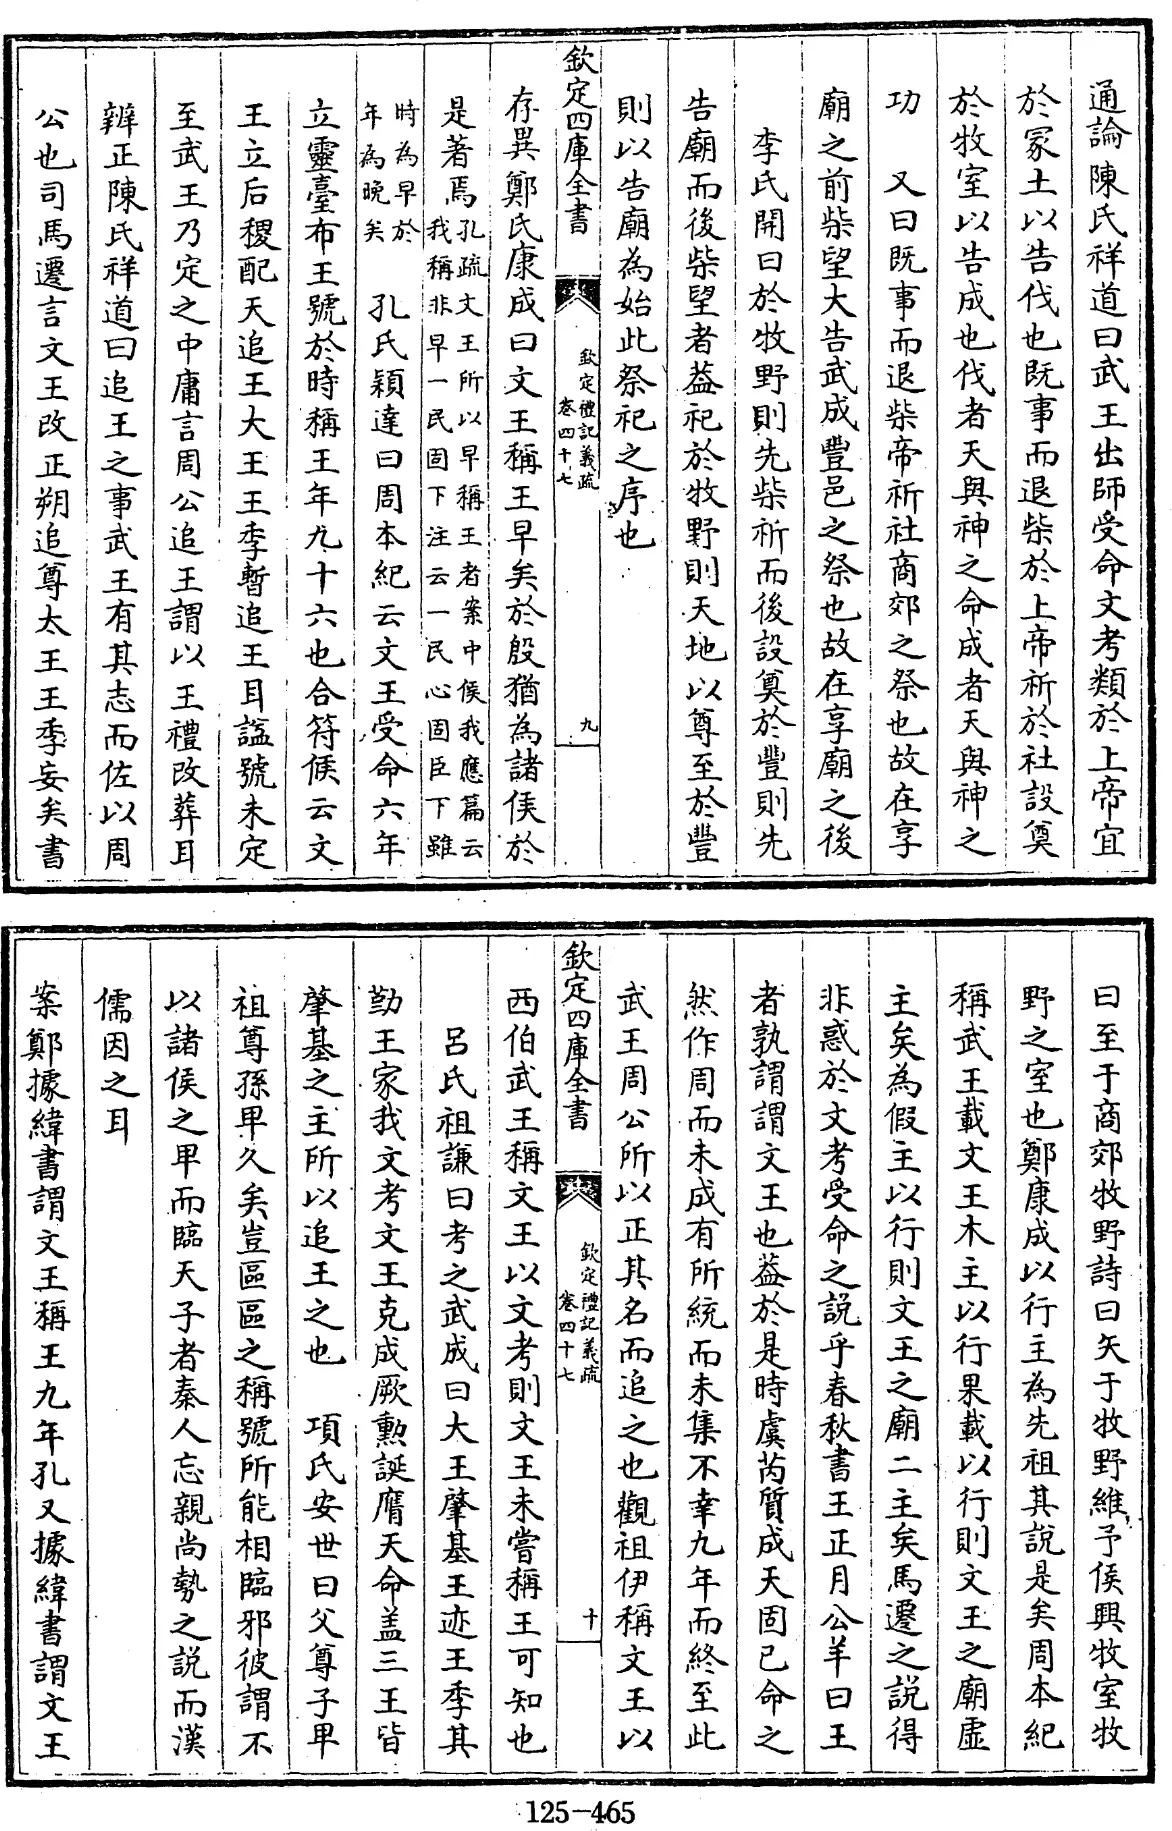 通論陳氏祥道曰武王出師受命文考類於上帝宜
於冡土以告伐也既事而退柴於上帝祈於社設奠
於牧室以告成也伐者天與神之命成者天與神之
功　又曰既事而退柴帝祈社商郊之祭也故在享
廟之前柴望大告武成豐邑之祭也故在享廟之後
李氏開曰於牧野則先柴祈而後設奠於豐則先
告廟而後柴望者葢祀於牧野則天地以尊至於豐
則以告廟為始此祭祀之序也
欽定四庫全書
欽定禮記義疏
卷四十七
九
存異鄭氏康成曰文王稱王早矣於殷猶為諸侯於
是著焉孔疏文王所以早稱王者案中候我應篇云
我稱非早一民固下注云一民心固臣下雖
時為早於
年為晚矣　孔氏穎達曰周本紀云文王受命六年
立靈臺布王號於時稱王年九十六也合符候云文
王立后稷配天追王大王王季暫追王耳諡號未定
至武王乃定之中庸言周公追王謂以王禮改葬耳
辨正陳氏祥道曰追王之事武王有其志而佐以周
公也司馬遷言文王改正朔追尊太王王季妄矣書
曰至于商郊牧野詩曰矢于牧野維予侯興牧室牧
野之室也鄭康成以行主為先祖其説是矣周本紀
稱武王載文王木主以行果載以行則文王之廟虛
主矣為假主以行則文王之廟二主矣馬遷之説得
非惑於文考受命之説乎春秋書王正月公羊曰王
者孰謂謂文王也葢於是時虞芮質成天固已命之
然作周而未成有所統而未集不幸九年而終至此
武王周公所以正其名而追之也觀祖伊稱文王以
欽定四庫全書
欽定禮記義疏
卷四十七
十
西伯武王稱文王以文考則文王未嘗稱王可知也
吕氏祖謙曰考之武成曰大王肇基王迹王季其
勤王家我文考文王克成厥勲誕膺天命盖三王皆
肇基之主所以追王之也　項氏安世曰父尊子卑
祖尊孫卑久矣豈區區之稱號所能相臨邪彼謂不
以諸侯之卑而臨天子者秦人忘親尚勢之説而漢
儒因之耳
案鄭據緯書謂文王稱王九年孔又據緯書謂文王
125-465